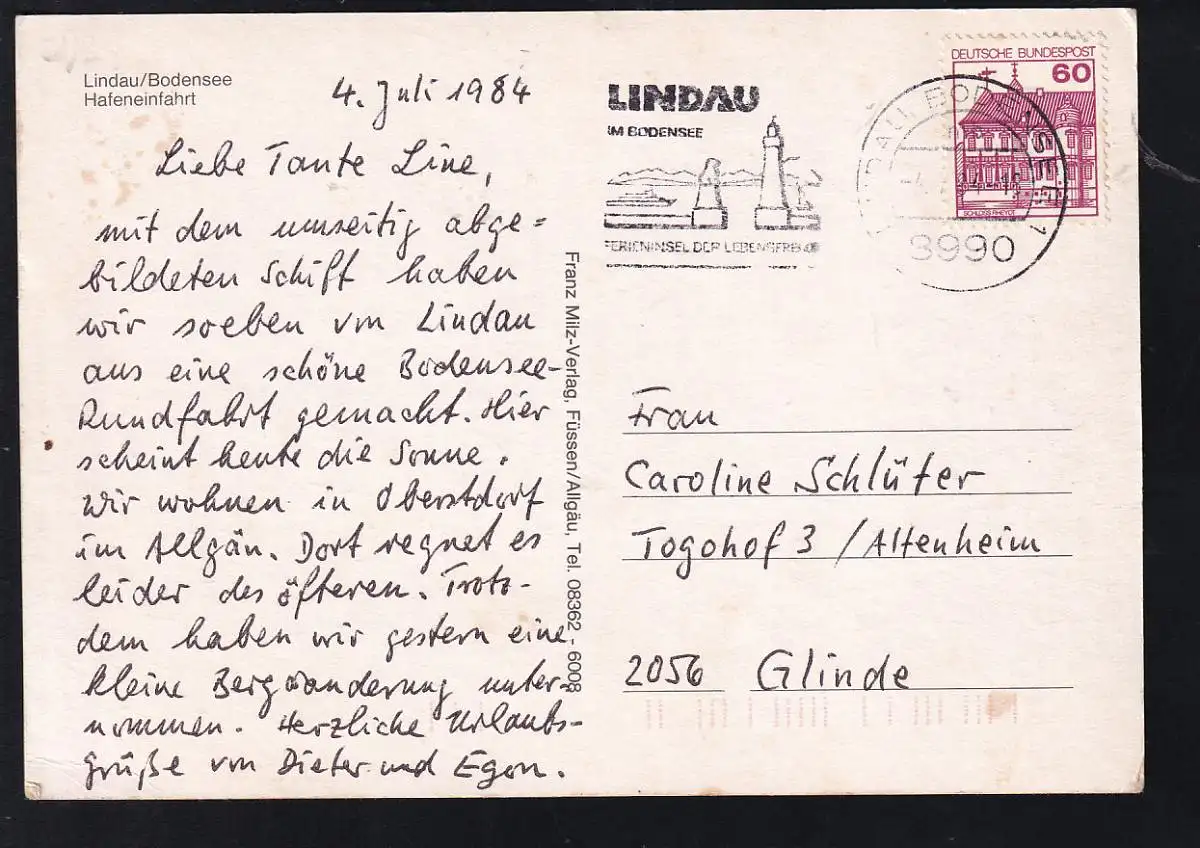 Lindau/Bodensee
Hafeneinfahrt
4. Juli 1984
Liebe Tante Line,
mit dem umseitig abge=
bildeten Schiff haben
wir soeben von Lindau
aus eine schöne Bodensee-
Rundfahrt gemacht. Hier
scheint heute die Sonne.
Wir wohnen in Oberstdorf
im Allgäu. Dort regnet es
leider des öfteren. Trotz-
dem haben wir gestern eine
kleine Bergwanderung unter-
nommen. Herzliche Urlaubs-
grüße von Dieter und Egon.
Franz Milz-Verlag, Füssen/Allgäu, Tel. 08362 - 6008
LINDAU
IM BODENSEE
FERIENINSEL DER LEBENSFREUDE
8990
DEUTSCHE BUNDESPOST
60
SCHLOSS RHEYDT
Frau
Caroline Schlüter
Togohof 3 / Altenheim
2056 Glinde